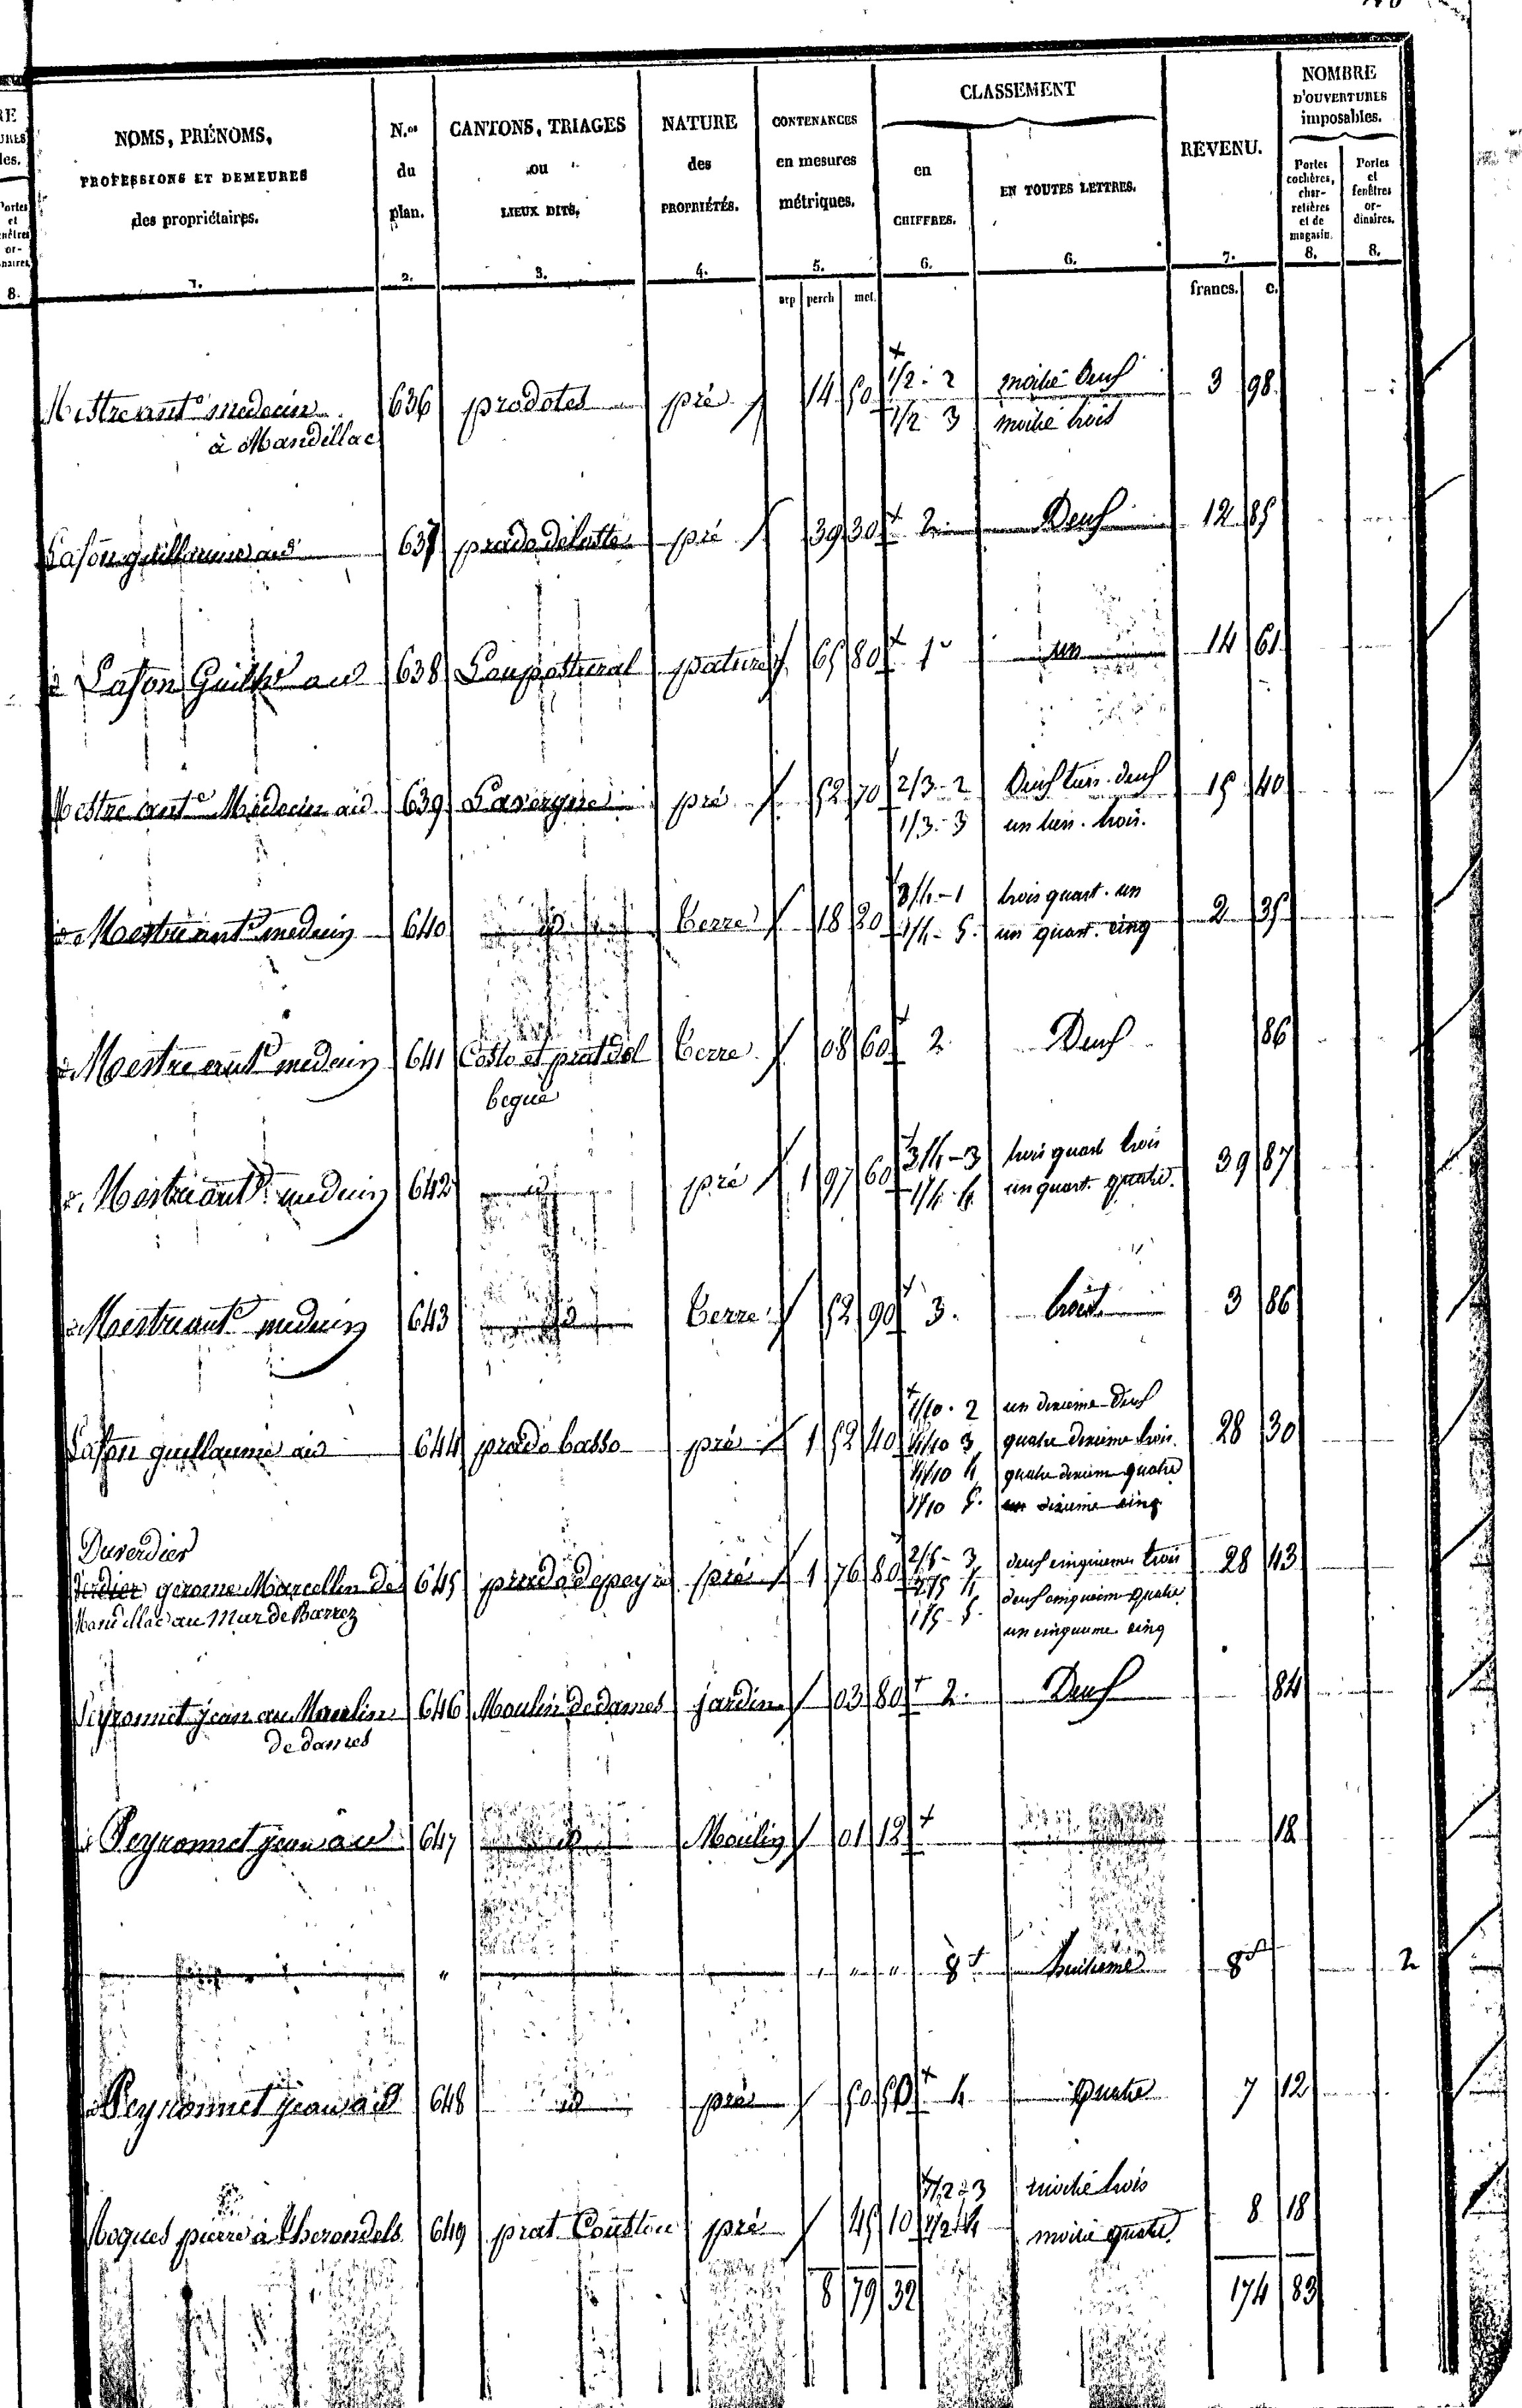 NOMS, PRÉNOMS, PROFESSIONS ET DEMEURES des propriétaires. 1.
N.os du plan. 2.
CANTONS, TRIAGES ou LIEUX DITS. 3.
NATURE des PROPRIÉTÉS. 4.
CONTENANCES en mesures métriques. 5.
CLASSEMENT
en CHIFFRES. 6.
EN TOUTES LETTRES. 6.
REVENU. 7.
NOMBRE D'OUVERTURES imposables.
Portes cochères, charretières et de magasin. 8.
Portes et fenêtres ordinaires. 8.
arp perch met. francs. c.
Mestre ante medecin 636 pradotes pré 14 50 1/2 - 2 moitié deux 3 98
à Mandillac 1/2 3 moitié trois
Lafon guillaume aud 637 prado pré 39 30 2 Deux 12 85
Lafon Guillme aud 638 Loupostural pature 65 80 1 un 14 61
Mestre ante Medecin aud 639 Lavergne pré 52 70 2/3 - 2 Deux tiers. deux 15 40
1/3 - 3 un tiers. trois.
Mestre ante medecin 640 id terre 18 20 3/4 - 1 trois quart. un 2 35
1/4 - 5. un quart. cinq
Mestre ante medecin 641 Costo et prat del terre 08 60 2 Deux 86
begue
Mestre ante medecin 642 id pré 1 97 60 3/4 - 3 trois quart trois 39 87
1/4 - 4 un quart. quatre.
Mestre ante medecin 643 id terre 52 90 3. trois 3 86
Lafon guillaume aud 644 prado basso pré 1 52 40 1/10 - 2 un dixieme deux 28 30
4/10 3 quatre dixieme trois
4/10 4 quatre dixieme quatre
1/10 5. un dixieme cinq
Duverdier
Verdier gerome Marcellin de 645 pré 1 76 80 2/5 - 3 deux cinquieme trois 28 43
Mandillac au Mur de Barrez 2/5 4 deux cinquieme quatre
1/5 - 5. un cinquieme cinq
Peyronnet jean au Moulin 646 Moulin de dames jardin 03 80 2. Deux 84
de dames
Peyronnet jean aud 647 id Moulin 01 12 18
" " " " 8e huitieme 8 2
Peyronnet jean aud 648 id pré 50 50 4 quatre 7 12
Roques pierre à 649 prat pré 45 10 1/2 - 3 moitié trois 8 18
1/2 - 4 moitié quatre.
8 79 32 174 83